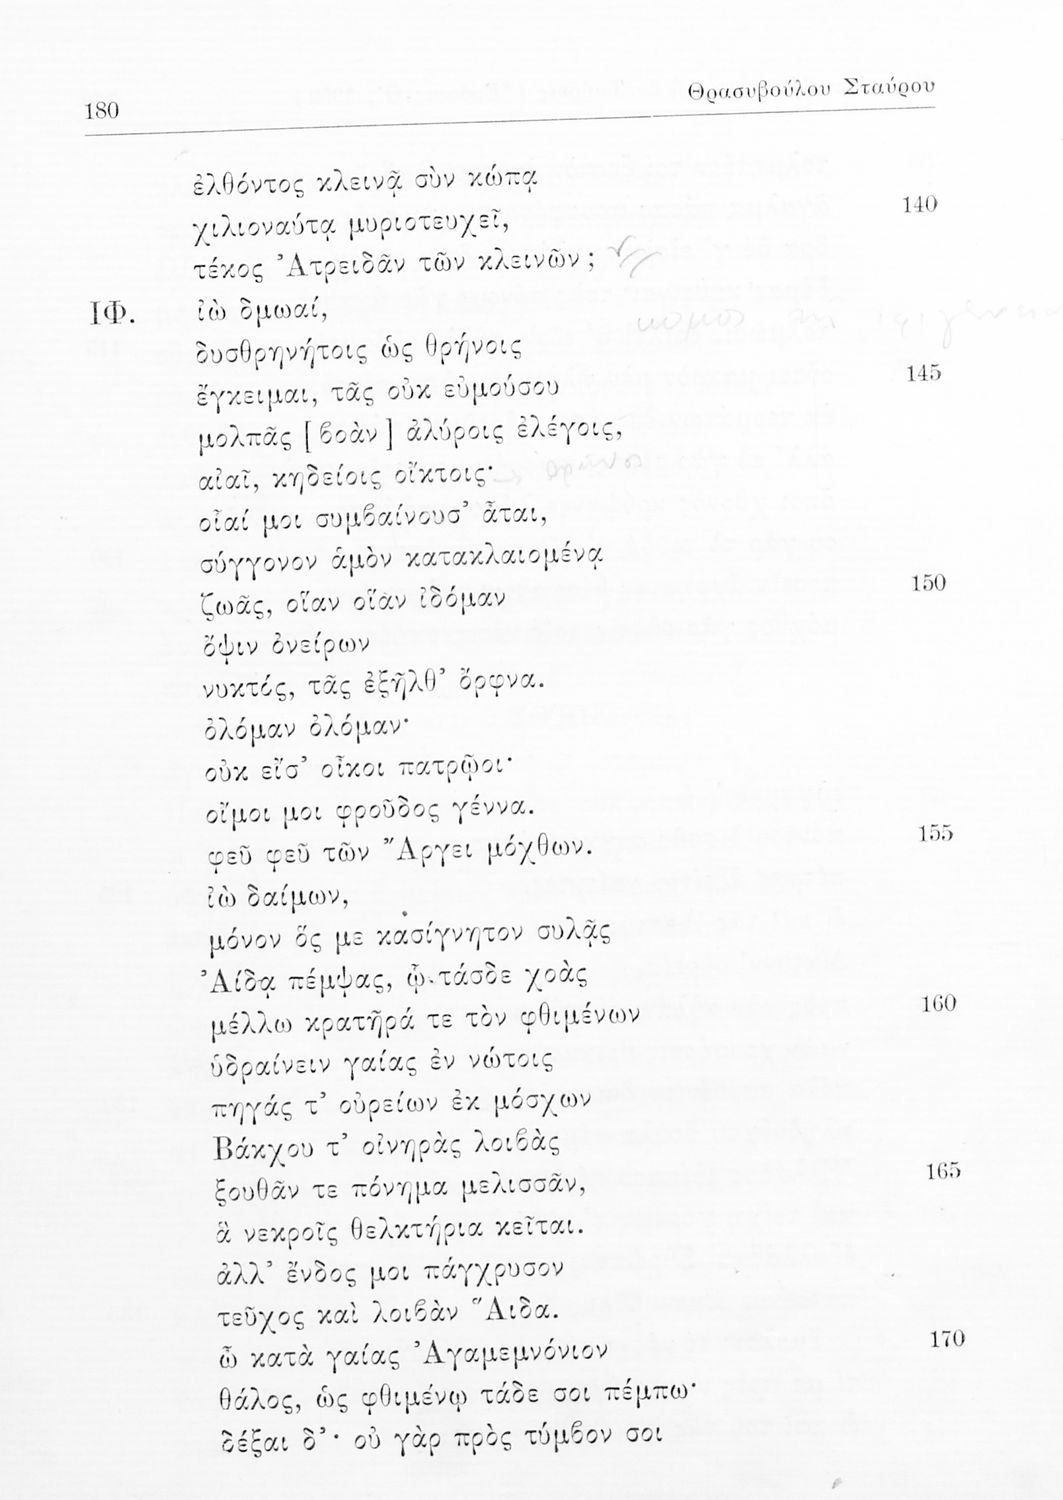 180 Θρασυβούλου Σταύρου
ἐλθόντος κλεινᾷ σὺν κώπᾳ
χιλιοναύτᾳ μυριοτευχεῖ, 140
τέκος Ἀτρειδᾶν τῶν κλεινῶν;
ΙΦ. ἰὼ δμωαί,
δυσθρηνήτοις ὡς θρήνοις
ἔγκειμαι, τᾶς οὐκ εὐμούσου 145
μολπᾶς [βοὰν] ἀλύροις ἐλέγοις,
αἰαῖ, κηδείοις οἴκτοις·
οἷαί μοι συμβαίνουσ’ ἆται,
σύγγονον ἁμὸν κατακλαιομένᾳ
ζωᾶς, οἵαν οἵαν ἰδόμαν 150
ὄψιν ὀνείρων
νυκτός, τᾶς ἐξῆλθ’ ὄρφνα.
ὀλόμαν ὀλόμαν·
οὐκ εἴσ’ οἶκοι πατρῷοι·
οἴμοι μοι φροῦδος γέννα.
φεῦ φεῦ τῶν Ἄργει μόχθων. 155
ἰὼ δαίμων,
μόνον ὅς με κασίγνητον συλᾷς
Ἀίδᾳ πέμψας, ᾧ τάσδε χοὰς
μέλλω κρατῆρά τε τὸν φθιμένων 160
ὑδραίνειν γαίας ἐν νώτοις
πηγάς τ’ οὐρείων ἐκ μόσχων
Βάκχου τ’ οἰνηρὰς λοιβὰς
ξουθᾶν τε πόνημα μελισσᾶν, 165
ἃ νεκροῖς θελκτήρια κεῖται.
ἀλλ’ ἔνδος μοι πάγχρυσον
τεῦχος καὶ λοιβὰν Ἅιδα.
ὦ κατὰ γαίας Ἀγαμεμνόνιον 170
θάλος, ὡς φθιμένῳ τάδε σοι πέμπω·
δέξαι δ’· οὐ γὰρ πρὸς τύμβον σοι